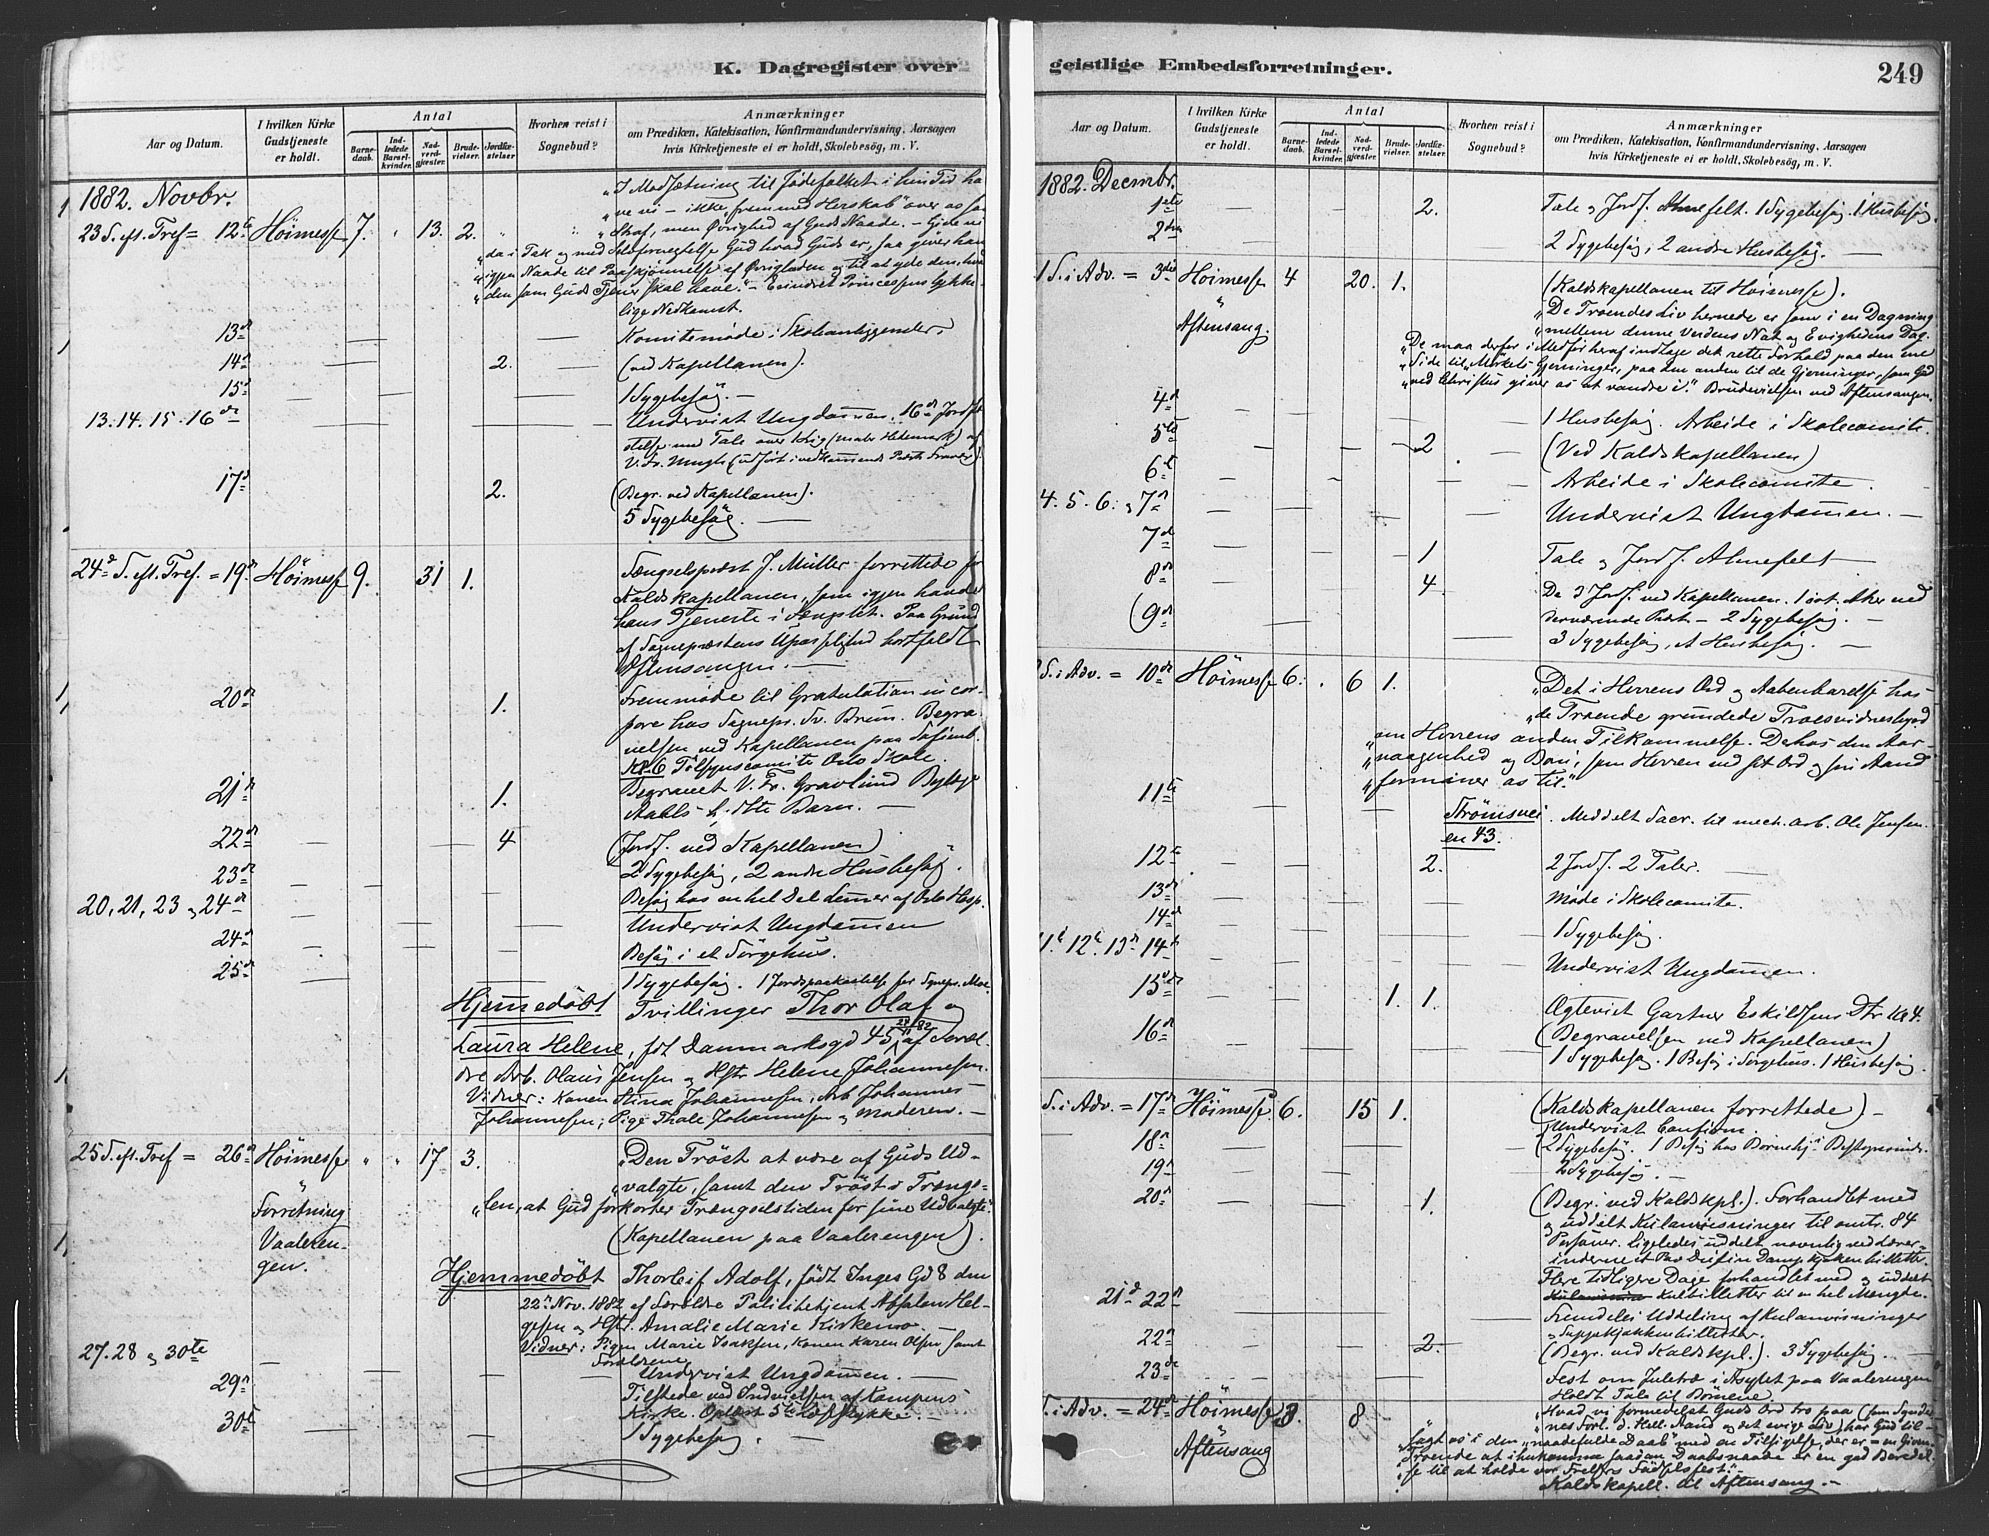 K. Dagregister over
Aar og Datum.
I hvilken Kirke Gudstjeneste er holdt.
Antal
Barnedaab.
Indledede Barselkvinder.
Nadverdgjester.
Brudevielser.
Jordfæstelser
Hvorhen reist i Sognebud?
Anmærkninger
om Prædiken, Katekisation, Konfirmandundervisning, Aarsagen
hvis Kirketjeneste ei er holdt, Skolebesøg, m. V.
1882. Novbr.
„I Modsætning til Jødefolket i hin Tid ha
ve vi – ikke „fremmed Herskab" over os som
23 S. eft. Tref = 12te Høimesse 7. 13. 2. „Straf, men Øvrighed af Guds Naade. – Give vi
„da i Tak og med Gud hvad Guds er, saa giver han
„igjen Naade til Paaskjønnelse af Øvrigheden og til at yde den, hvad
„den som Guds Tjener skal have." – Erindret Princessens lykke-
lige Nedkomst.
13de — — Komitemøde i Skoleanliggender.
14de — 2. — (ved Kapellanen).
15de — — 1 Sygebesøg. —
13. 14. 15. 16de — — Undervist Ungdommen. 16de Jordfæ
stelse med Tale over
V. Fr.
17de 2. (Begr. ved Kapellanen).
5 Sygebesøg. —
24de S. eft. Tref. = 19de Høimesse 9. 31 1. Fængselspræst J. Müller forrettede for
Kaldskapellanen, som igjen havde
hans Tjeneste i Fængslet. Paa Grund
af Sognepræstens Upasselighed bortfaldt
Aftensangen. —
20de 1. Fremmøde til Gratulation in cor-
pore hos Sognepr. Sv. Brun. Begra-
velsen ved Kapellanen paa
Kl 6 Tilsynscomite Oslo Skole.
21de 1. Begravet V. Fr. Gravlund
Barn. —
22de — 4 (Jordf. ved Kapellanen)
23de — — 2 Sygebesøg, 2 andre Husbesøg.
20, 21, 23 og 24de — — Besøg hos en hel Del Lemmer af Oslo Hosp.
Undervist Ungdommen
24de — Besøg i et Sørgehus.
25de — 1 Sygebesøg. 1 Jordspaakastelse for Sognepr.
Hjemmedøbt Tvillinger Thor Olaf og
Laura Helene, fdt Danmarksgd 45 af Foræl-
dre Arb. Olaus Jensen og Hstr Helene Johannesen.
Vidner: Konen Stina Johannesen, Arb Johannes
Johannesen, Pige Thale Johannesen og Moderen. —
25 S. eft. Tref = 26de Høimesse „ „ 17 3. „Den Trøst at være af Guds Ud-
„valgte, samt den Trøst i Trængs-
„len, at Gud forkorter Trængselstiden for sine Udvalgte."
Forretning
Vaaleren-
gen.
(Kapellanen paa Vaalerengen).
Hjemmedøbt Thorleif Adolf, født Inges Gd 8 den
22de Nov. 1882 af Forældre Politibetjent Absalon Hel-
gesen og Hstr. Amalie Marie Kirkemo. —
Vidner: Pigen Marie Isaksen, Konen Karen Olsen samt
Forældrene
27. 28 og 30te — Undervist Ungdommen. —
29de — Tilstede ved Indvielsen af Kampens
Kirke. Oplæst 5te Læsestykke. —
30te — 1 Sygebesøg. —
geistlige Embedsforretninger.
249
Aar og Datum.
I hvilken Kirke Gudstjeneste er holdt.
Antal
Barnedaab.
Indledede Barselkvinder.
Nadverdgjester.
Brudevielser.
Jordfæstelser.
Hvorhen reist i Sognebud?
Anmærkninger
om Prædiken, Katekisation, Konfirmandundervisning, Aarsagen
hvis Kirketjeneste ei er holdt, Skolebesøg, m. V.
1882. Decmbr.
1ste — — 2. Tale og Jordf. 1 Sygebesøg. 1 Husbesøg.
2den — — 2 Sygebesøg, 2 andre Husbesøg. —
1 S. i Adv. = 3die Høimesse 4 20. 1. (Kaldskapellanen til Høimesse).
„
Aftensang.
„De Troendes Liv hernede er som i en Dagning
„mellem denne Verdens Nat og Evighedens Dag.
„De maa derfor i Medfør heraf indtage det rette Forhold paa den ene
„Side til „Mørkets Gjerninger, paa den anden til de Gjerninger, som Gud
„ved Christus giver os at vandre i." Brudevielsen ved Aftensangen.
4de — — 1 Husbesøg. Arbeide i Skolecomite.
5te — 2 (Ved Kaldskapellanen)
6te — — Arbeide i Skolecomite.
4. 5. 6. og 7de — Undervist Ungdommen. —
7de — 1 Tale og Jordf. —
8de — 4 De 3 Jordf. ved Kapellanen. 1 ved
værende Præst – 2 Sygebesøg. —
(9de — 3 Sygebesøg, 1 Husbesøg. —
S. i Adv. = 10de Høimesse 6. 6 1. „Det i Herrens Ord og Aabenbarelse hos
„de Troende grundede Troesvidnesbyrd
„om Herrens anden Tilkommelse. Dehos den Aar-
„vaagenhed og Bøn, som Herren ved sit Ord og sin Aand
„formaner os til."
11te — Strømsvei-
en 43. Meddelt Sacr. til mech. Arb. Ole Jensen.
12te — 2. 2 Jordf. 2 Taler. —
13de — Møde i Skolecomite.
14de — 1 Sygebesøg.
11te 12te 13de 14de — Undervist Ungdommen.
15de — 1. 1. Ægteviet Gartner Eskildsens Dtr
(Begravelsen ved Kapellanen)
16de — 1 Sygebesøg. 1 Besøg i Sørgehus. 1 Husbesøg.
S. i Adv. = 17de Høimesse. 6. 15 1. (Kaldskapellanen forrettede) –
Undervist Confirm.
18de 2 Sygebesøg. 1 Besøg hos
19de — 2 Sygebesøg. —
20de — 1. (Begr. ved Kaldskpl.). Forhandlet med
og uddelt Kulanvisninger til omtr. 84
Personer. Ligeledes uddelt navnlig ved Lærer-
inderne et Par Dusin Dampkjøkkenbilletter
Flere tidligere Dage forhandlet med og uddelt
Kulbilletter til en hel Mængde.
21de 22de — Fremdeles Uddeling af Kulanvisninger
og Suppekjøkkenbilletter.
22de — 2. (Begr. ved Kaldskpl.). 3 Sygebesøg. —
23de — Fest om Juletræ i Asylet paa Vaalerengen
Holdt Tale til Børnene.
S. i Adv. = 24de Høimesse 3. 8 „Hvad vi formedelst Guds Ord tro paa (om Synder-
„
Aftensang
„nes Forl. d. Hell. Aand og det evige Liv) har Gud til-
„sagt os i den „naadefulde Daab" med en Tilsigelse, der er = en Given.
„Troende at ihukomme saadan Daabsnaade er en god Beredel-
„se til at holde vor Frelsers Fødselsfest." –
Kaldskapell. til Aftensang. –